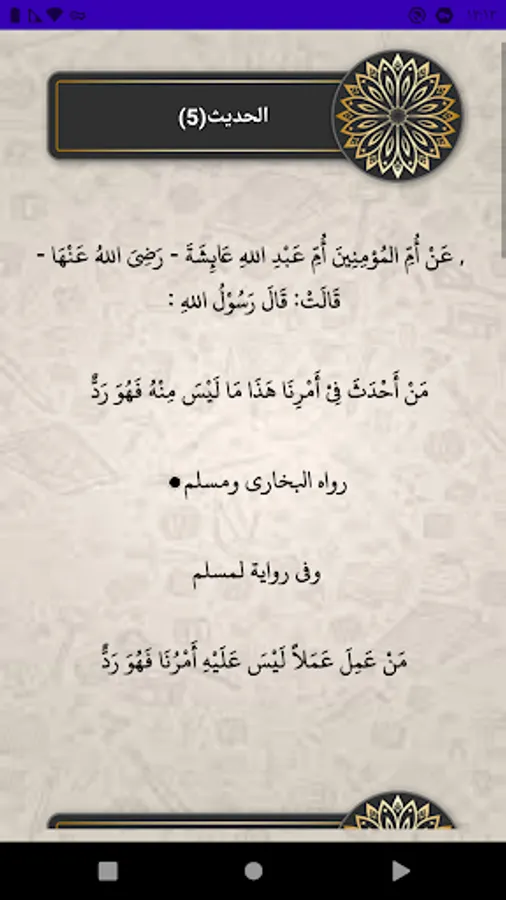 ١٢:١٢
الحديث(5)
, عَنْ أُمِّ المُؤمِنِينَ أُمِّ عَبْدِ اللهِ عَايِشَةَ - رَضِىَ اللهُ عَنْهَا -
قَالَتْ: قَالَ رَسُوْلُ اللهِ :
مَنْ أَحْدَثَ فِىْ أَمْرِنَا هَذَا مَا لَيْسَ مِنْهُ فَهُوَ رَدٌّ
رواه البخارى ومسلم●
وفى رواية لمسلم
مَنْ عَمِلَ عَمَلاً لَيْسَ عَلَيْهِ أَمْرُنَا فَهُوَ رَدٌّ